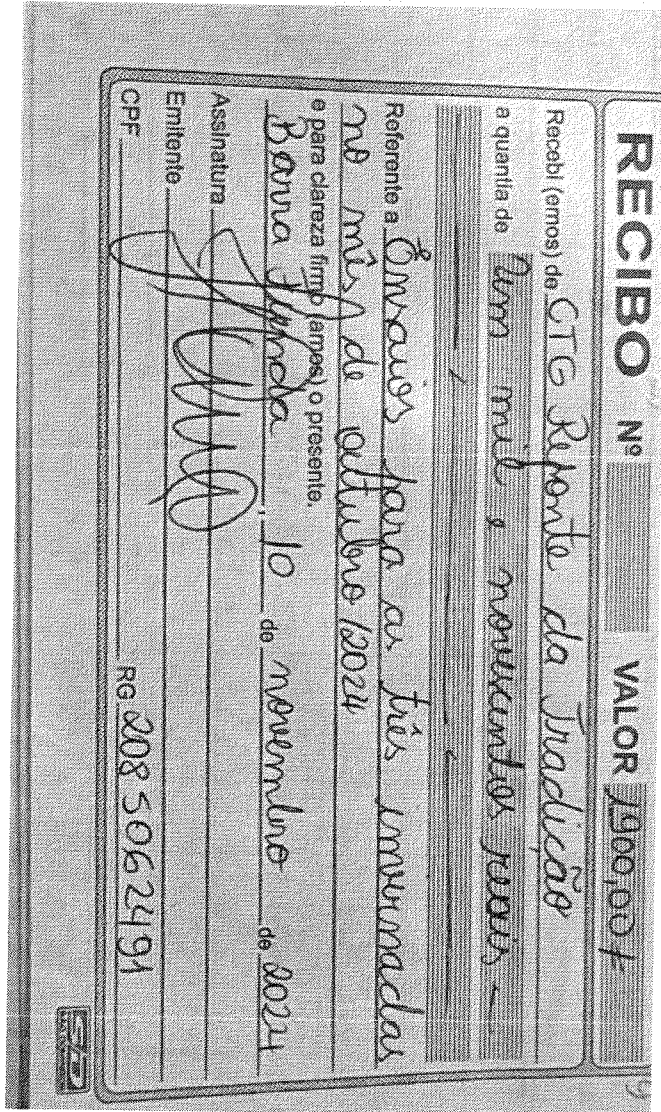 RECIBO Nº VALOR 1.900,00
Recebi (emos) de CTG Reponte da Tradição
a quantia de um mil e novescentos reais -
Referente a Ensaios para as três invernadas
no mês de outubro/2024
e para clareza firmo (amos) o presente.
Barra Funda, 10 de novembro de 2024
Assinatura
Emitente
CPF RG 2085062491